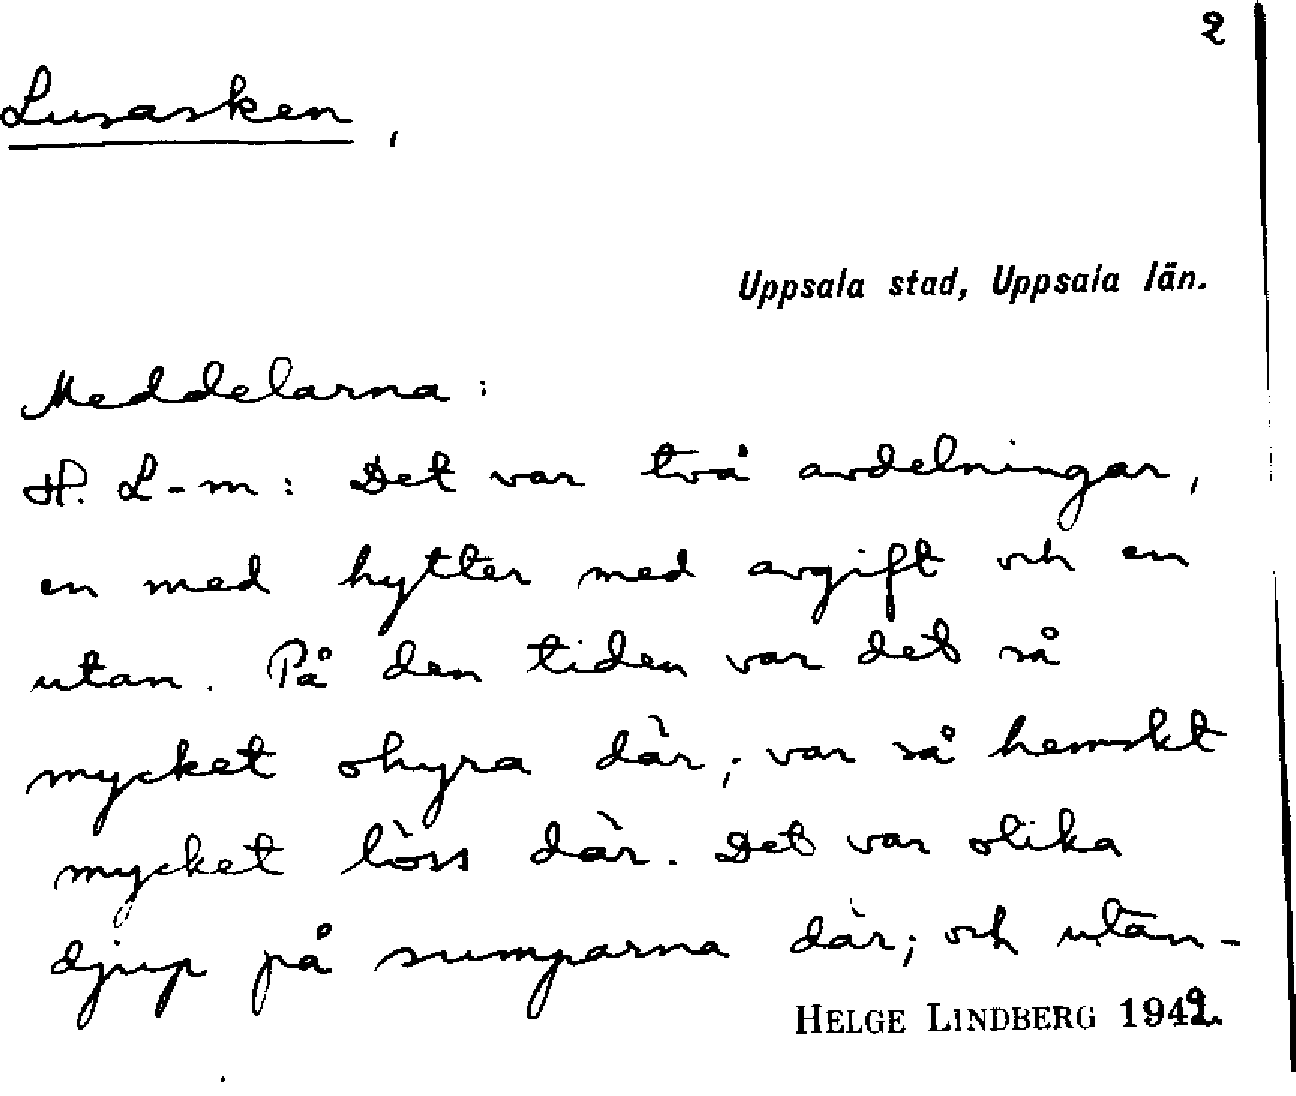 2
Lusasken,
Uppsala stad, Uppsala län.
Meddelarna:
H. L-m: Det var två avdelningar,
en med hytter med avgift och en
utan. På den tiden var det så
mycket ohyra där, var så hemskt
mycket löss där. Det var olika
djup på sumparna där, och utan-
HELGE LINDBERG 1949.